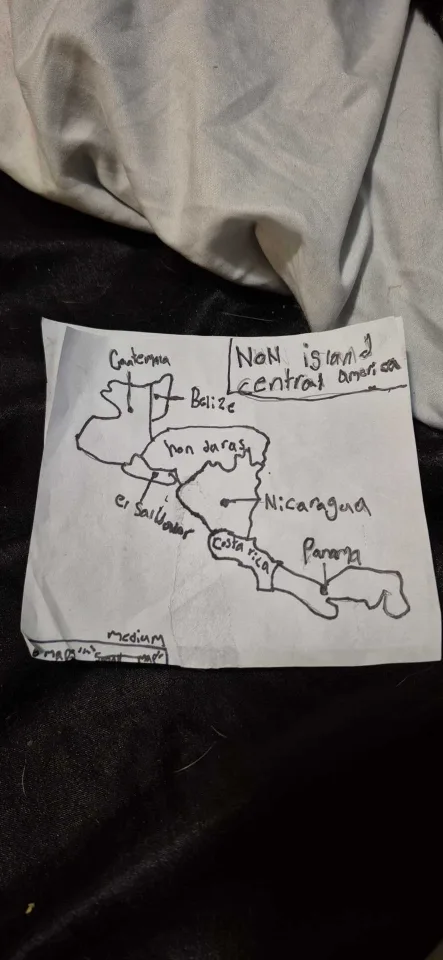 NoN island
central america
Guatemala
Belize
hon duras
el Salvador
Nicaragua
Costa rica
Panama
medium